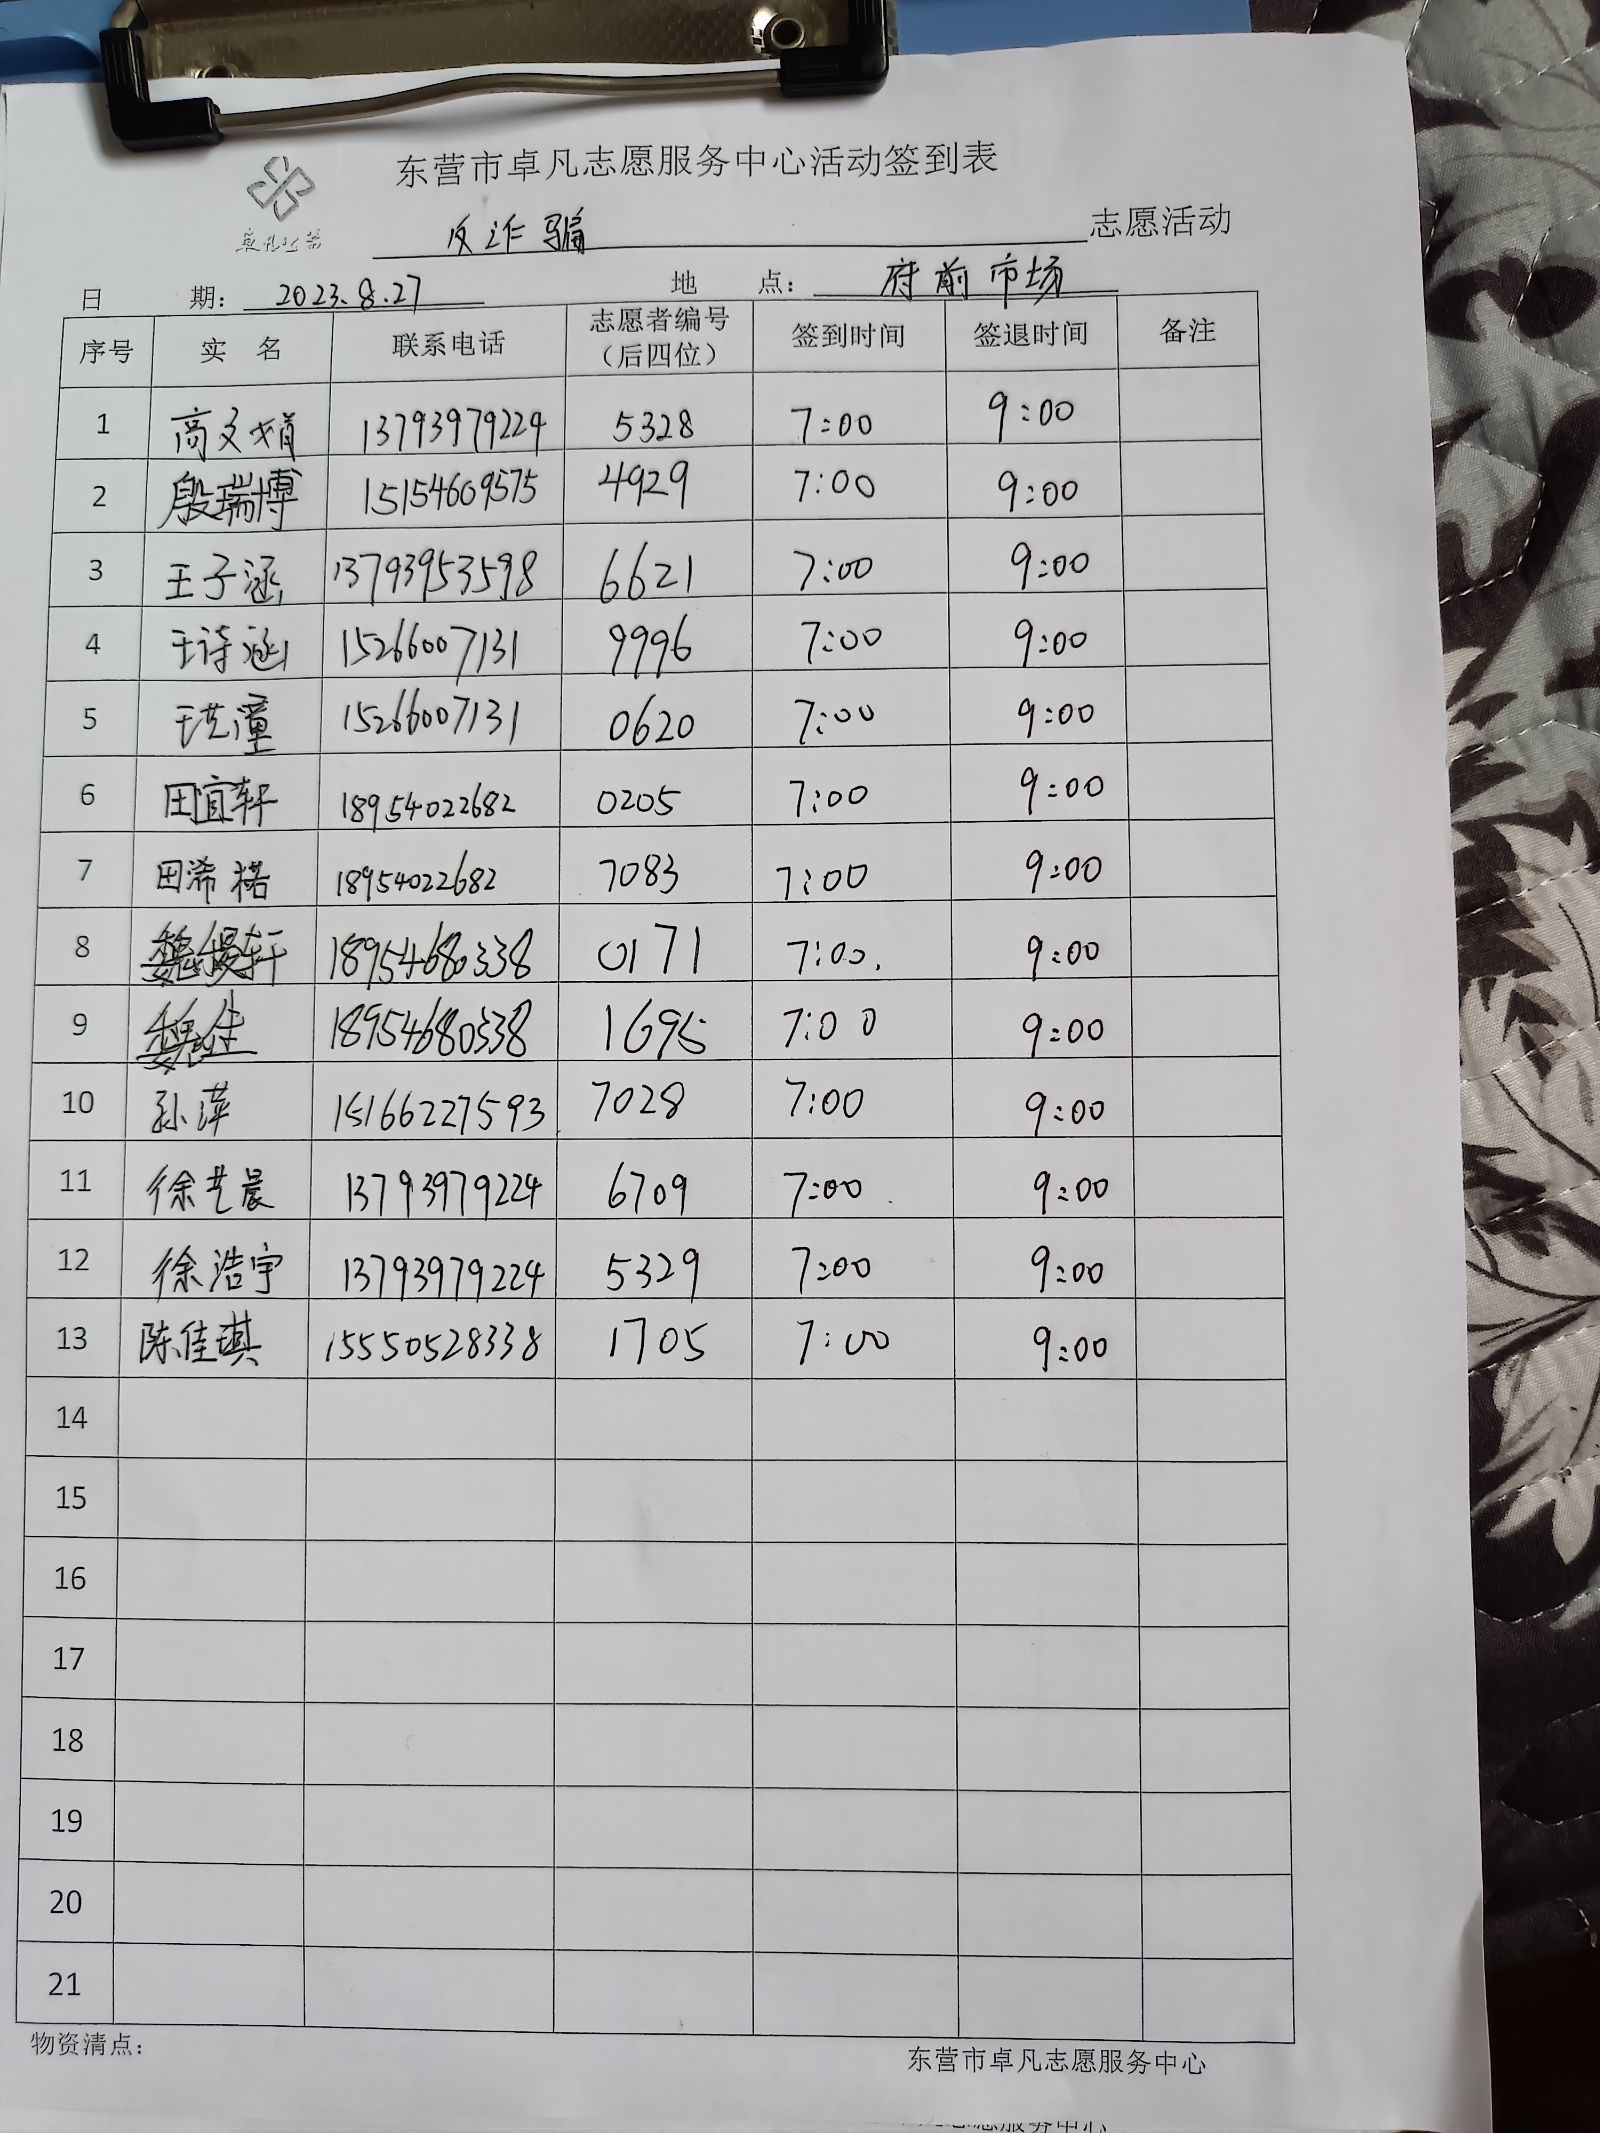 东营市卓凡志愿服务中心活动签到表
卓凡公益
反诈骗 志愿活动
日 期: 2023.8.27 地 点: 府前市场
序号 实 名 联系电话 志愿者编号（后四位） 签到时间 签退时间 备注
1 高文娟 13793979224 5328 7:00 9:00
2 殷瑞博 15154609575 4929 7:00 9:00
3 王子涵 13793953598 6621 7:00 9:00
4 王诗涵 15266007131 9996 7:00 9:00
5 王艺潼 15266007131 0620 7:00 9:00
6 田宜轩 18954022682 0205 7:00 9:00
7 田浠楉 18954022682 7083 7:00 9:00
8 18954680338 0171 7:00. 9:00
9 18954680338 1695 7:00 9:00
10 孙萍 15166227593 7028 7:00 9:00
11 徐艺晨 13793979224 6709 7:00 9:00
12 徐浩宇 13793979224 5329 7:00 9:00
13 陈佳琪 15550528338 1705 7:00 9:00
14
15
16
17
18
19
20
21
物资清点:
东营市卓凡志愿服务中心